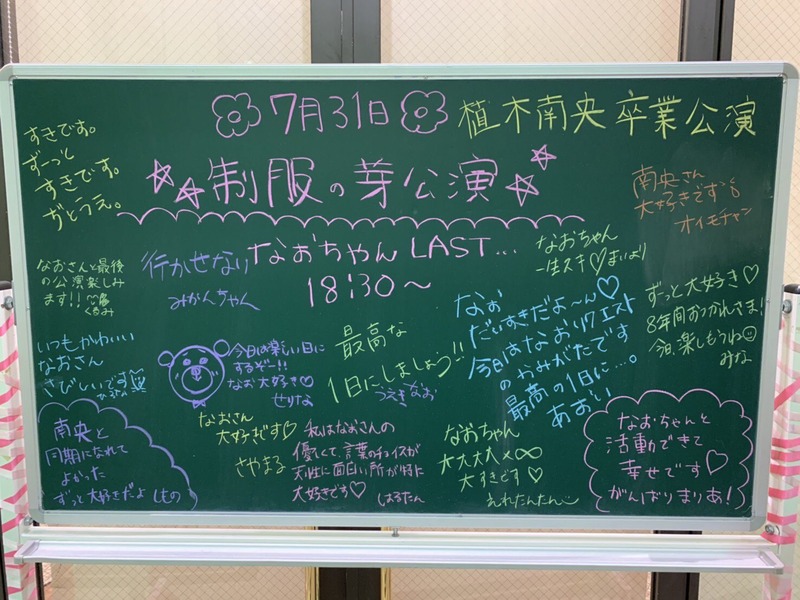 7月31日
植木南央 卒業公演
制服の芽公演
なおちゃん LAST...
18:30〜
すきです。
ずっと
すきです。
がとうえ。
南央さん
大好きです
オイモチャン
なおさんと最後
の公演楽しみ
ます!!
くるみ
行かせない
みかんちゃん
なおちゃん
一生スキ♡まいより
なお
だいすきだよ〜ん♡
今日はなおリクエスト
のおみがたです
最高の1日に...。
あおい
ずっと大好き♡
8年間おつかれさま!
今日、楽しもうね
みな
いつもかわいい
なおさん
さびしいです
今日は楽しい日に
するぞー!!
なお大好き♡
せりな
最高な
1日にしましょう!!
うえきなお
南央と
同期になれて
よかった
ずっと大好きだよ しもの
なおさん
大好きです♡
さやまる
私はなおさんの
優しくて、言葉のチョイスが
天性に面白い所が特に
大好きです♡
はるたん
なおちゃん
大大大大×∞
大すきです♡
えれたんたん
なおちゃんと
活動できて
幸せです♡
がんばりまりあ!